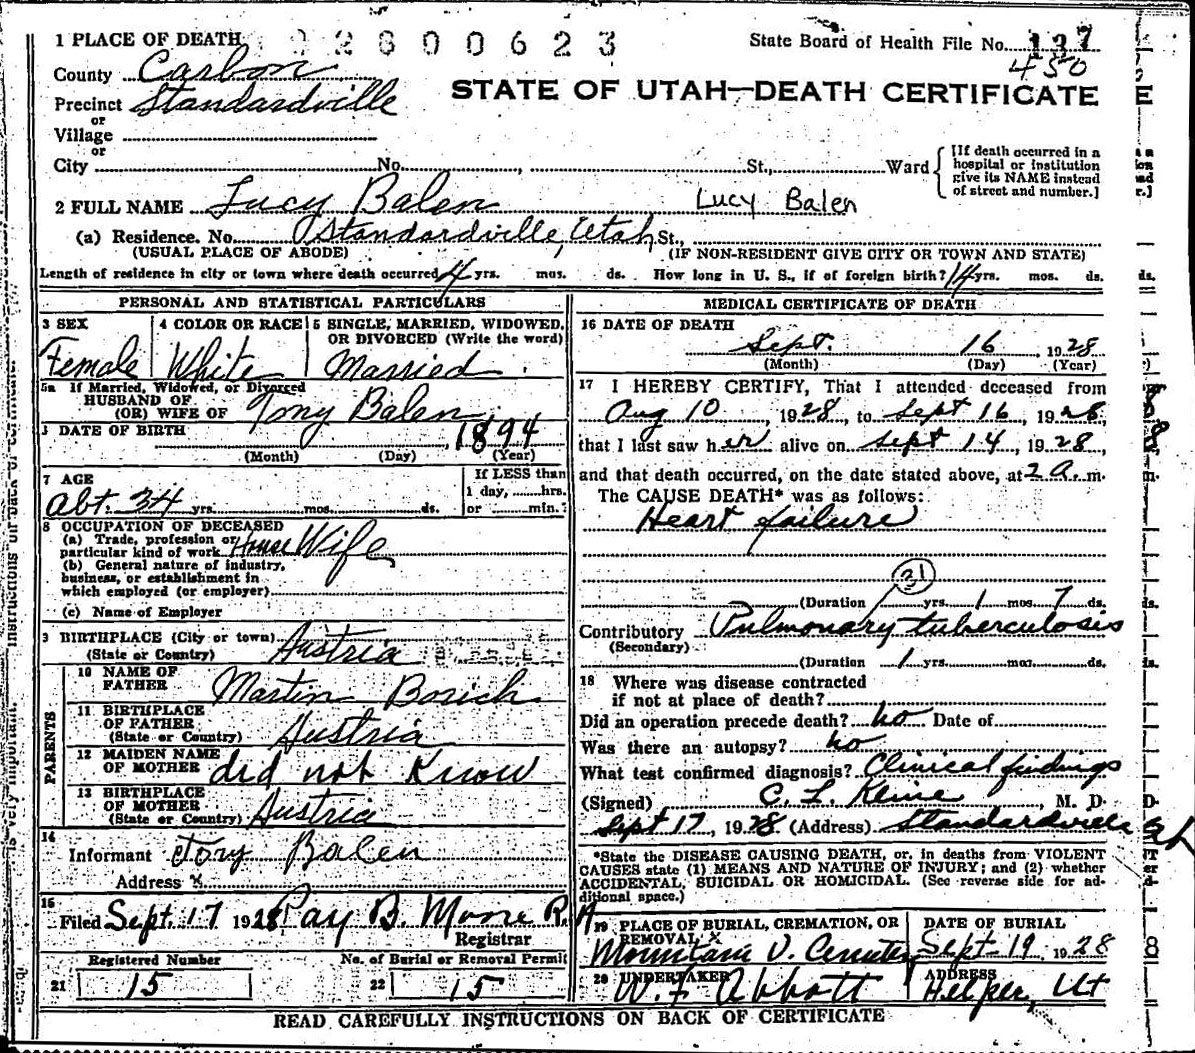 1 PLACE OF DEATH 92800623 State Board of Health File No. 137
County Carbon 450
Precinct Standardville STATE OF UTAH—DEATH CERTIFICATE
or
Village
or
City No. , St., Ward {[If death occurred in a hospital or institution give its NAME instead of street and number.]
2 FULL NAME Lucy Balen Lucy Balen
(a) Residence. No. Standardville, Utah St.,
(USUAL PLACE OF ABODE) (IF NON-RESIDENT GIVE CITY OR TOWN AND STATE)
Length of residence in city or town where death occurred 4 yrs. mos. ds. How long in U. S., if of foreign birth? 14 yrs. mos. ds.
PERSONAL AND STATISTICAL PARTICULARS
3 SEX 4 COLOR OR RACE 5 SINGLE, MARRIED, WIDOWED,
OR DIVORCED (Write the word)
Female White Married
5a If Married, Widowed, or Divorced
HUSBAND OF
(OR) WIFE OF Tony Balen
DATE OF BIRTH 1894
(Month) (Day) (Year)
7 AGE If LESS than
1 day, hrs.
Abt. 34 yrs. mos. ds. or min.?
8 OCCUPATION OF DECEASED
(a) Trade, profession or
particular kind of work House Wife
(b) General nature of industry,
business, or establishment in
which employed (or employer)
(c) Name of Employer
9 BIRTHPLACE (City or town)
(State or Country) Austria
PARENTS
10 NAME OF
FATHER Martin Bosich
11 BIRTHPLACE
OF FATHER
(State or Country) Austria
12 MAIDEN NAME
OF MOTHER did not Know
13 BIRTHPLACE
OF MOTHER
(State or Country) Austria
14
Informant Tony Balen
Address X
15
Filed Sept. 17 1928 Ray B. Moore R.A
Registrar
Registered Number No. of Burial or Removal Permit
21 15 22 15
MEDICAL CERTIFICATE OF DEATH
16 DATE OF DEATH
Sept. 16, 1928
(Month) (Day) (Year)
17 I HEREBY CERTIFY, That I attended deceased from
Aug 10, 1928, to Sept 16, 1928,
that I last saw her alive on Sept 14, 1928,
and that death occurred, on the date stated above, at 2 a. m.
The CAUSE DEATH* was as follows:
Heart failure
31
(Duration yrs. 1 mos. 7 ds.
Contributory Pulmonary tuberculosis
(Secondary)
(Duration 1 yrs. mos. ds.
18 Where was disease contracted
if not at place of death?
Did an operation precede death? no Date of
Was there an autopsy? no
What test confirmed diagnosis? Clinical findings
(Signed) C. L. Kline, M. D.
Sept 17, 1928 (Address) Standardville
*State the DISEASE CAUSING DEATH, or, in deaths from VIOLENT
CAUSES state (1) MEANS AND NATURE OF INJURY; and (2) whether
ACCIDENTAL, SUICIDAL OR HOMICIDAL. (See reverse side for ad-
ditional space.)
19 PLACE OF BURIAL, CREMATION, OR DATE OF BURIAL
REMOVAL X
Mountain V. Cemetery Sept 19 1928
20 UNDERTAKER ADDRESS
W. F. Abbott Helper, Ut
READ CAREFULLY INSTRUCTIONS ON BACK OF CERTIFICATE